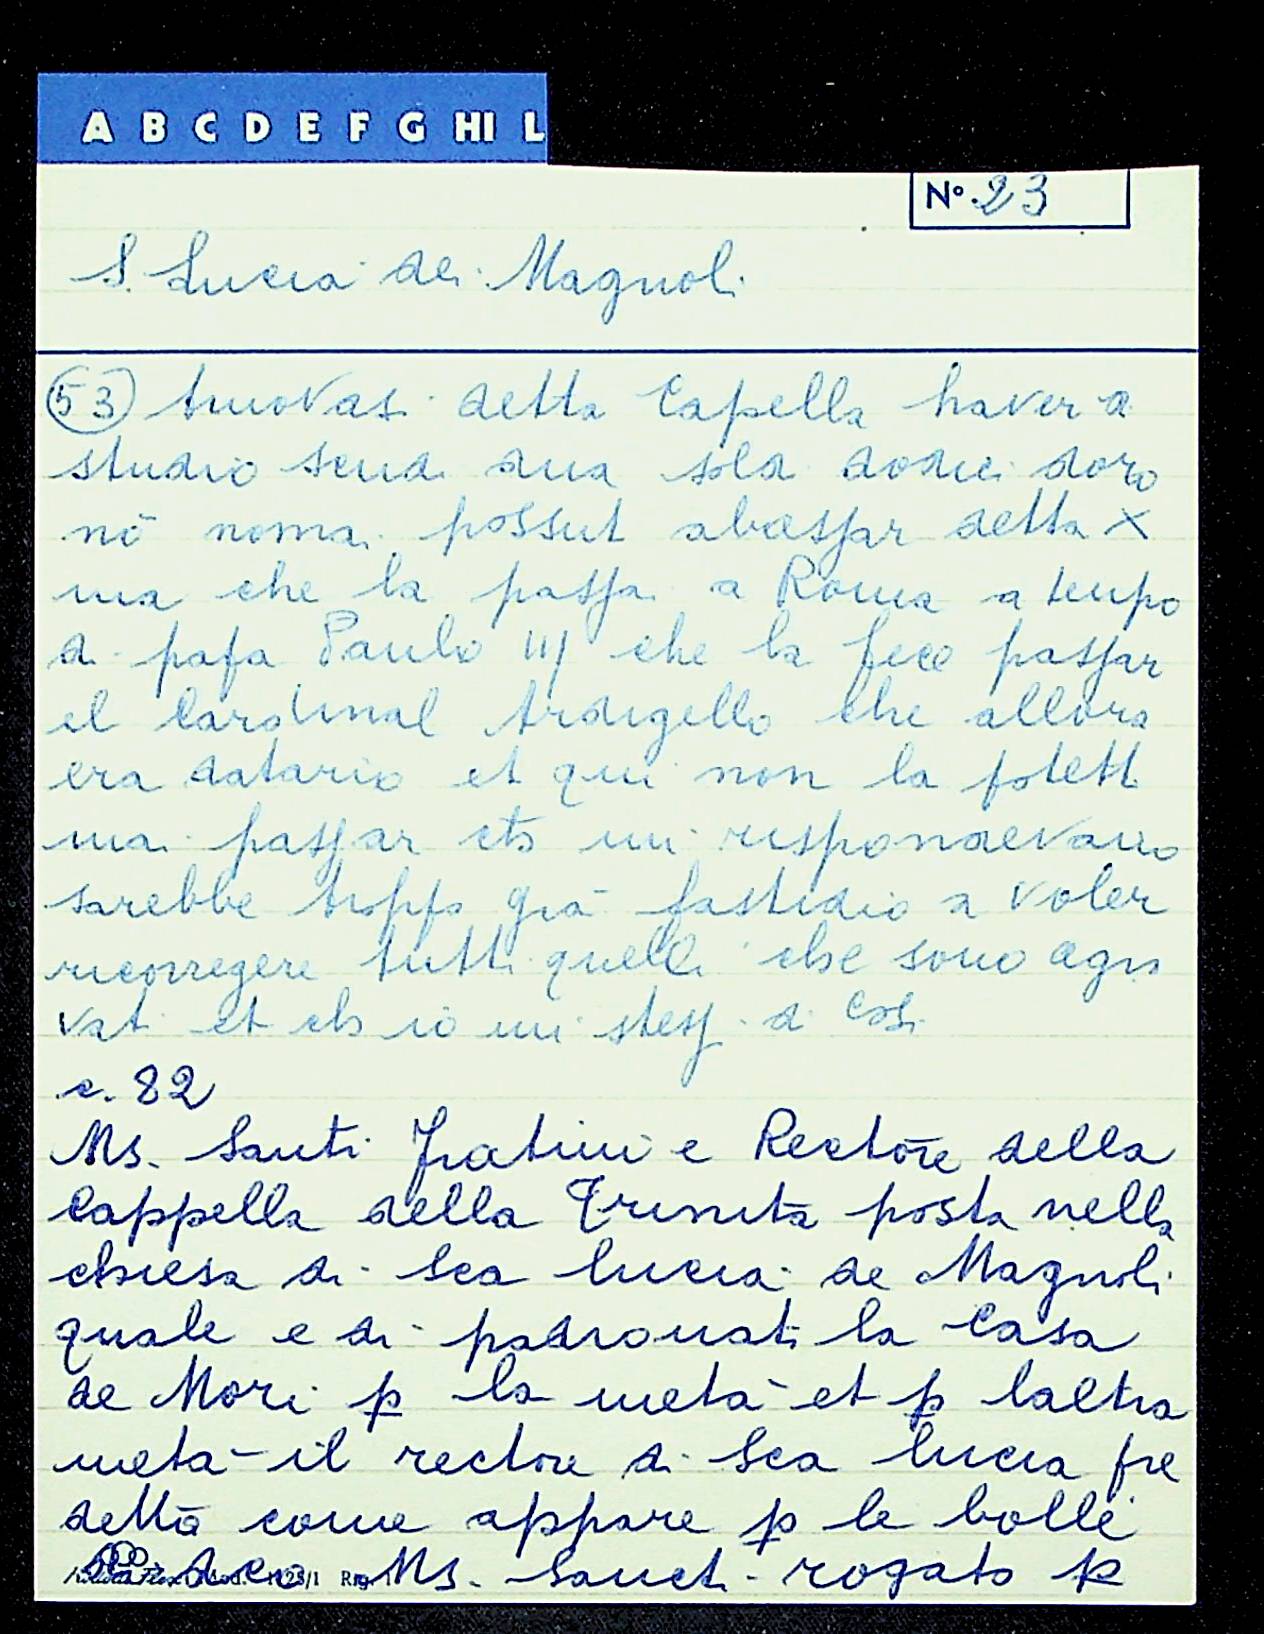 A B C D E F G HI L
No. 23
S. Lucia dei Magnoli
53 truovasi detta Capella haver a
studio scudi dua soldi dodici doro
nō noma possuti abassar detta X
ma che la passa a Roma a tempo
di papa Paulo III che la fece passar
el Cardinal Ardigello che allora
era datario et qui non la potetti
mai passar ch mi rispondevano
sarebbe troppo grā fastidio a voler
ricorregere tutti quelli che sono agra
vati et ch io mi stessi di così
c. 82
Ms. Santi fratini e Rectōre della
Cappella della Trinita posta nella
chiesa di Sca lucia de Magnoli
quale e di padronati la Casa
de Mori p la metà et p laltra
metà il rectore di Sca lucia pre
dettā come appare p le bolle
di deco Ms. Sancti rogato p